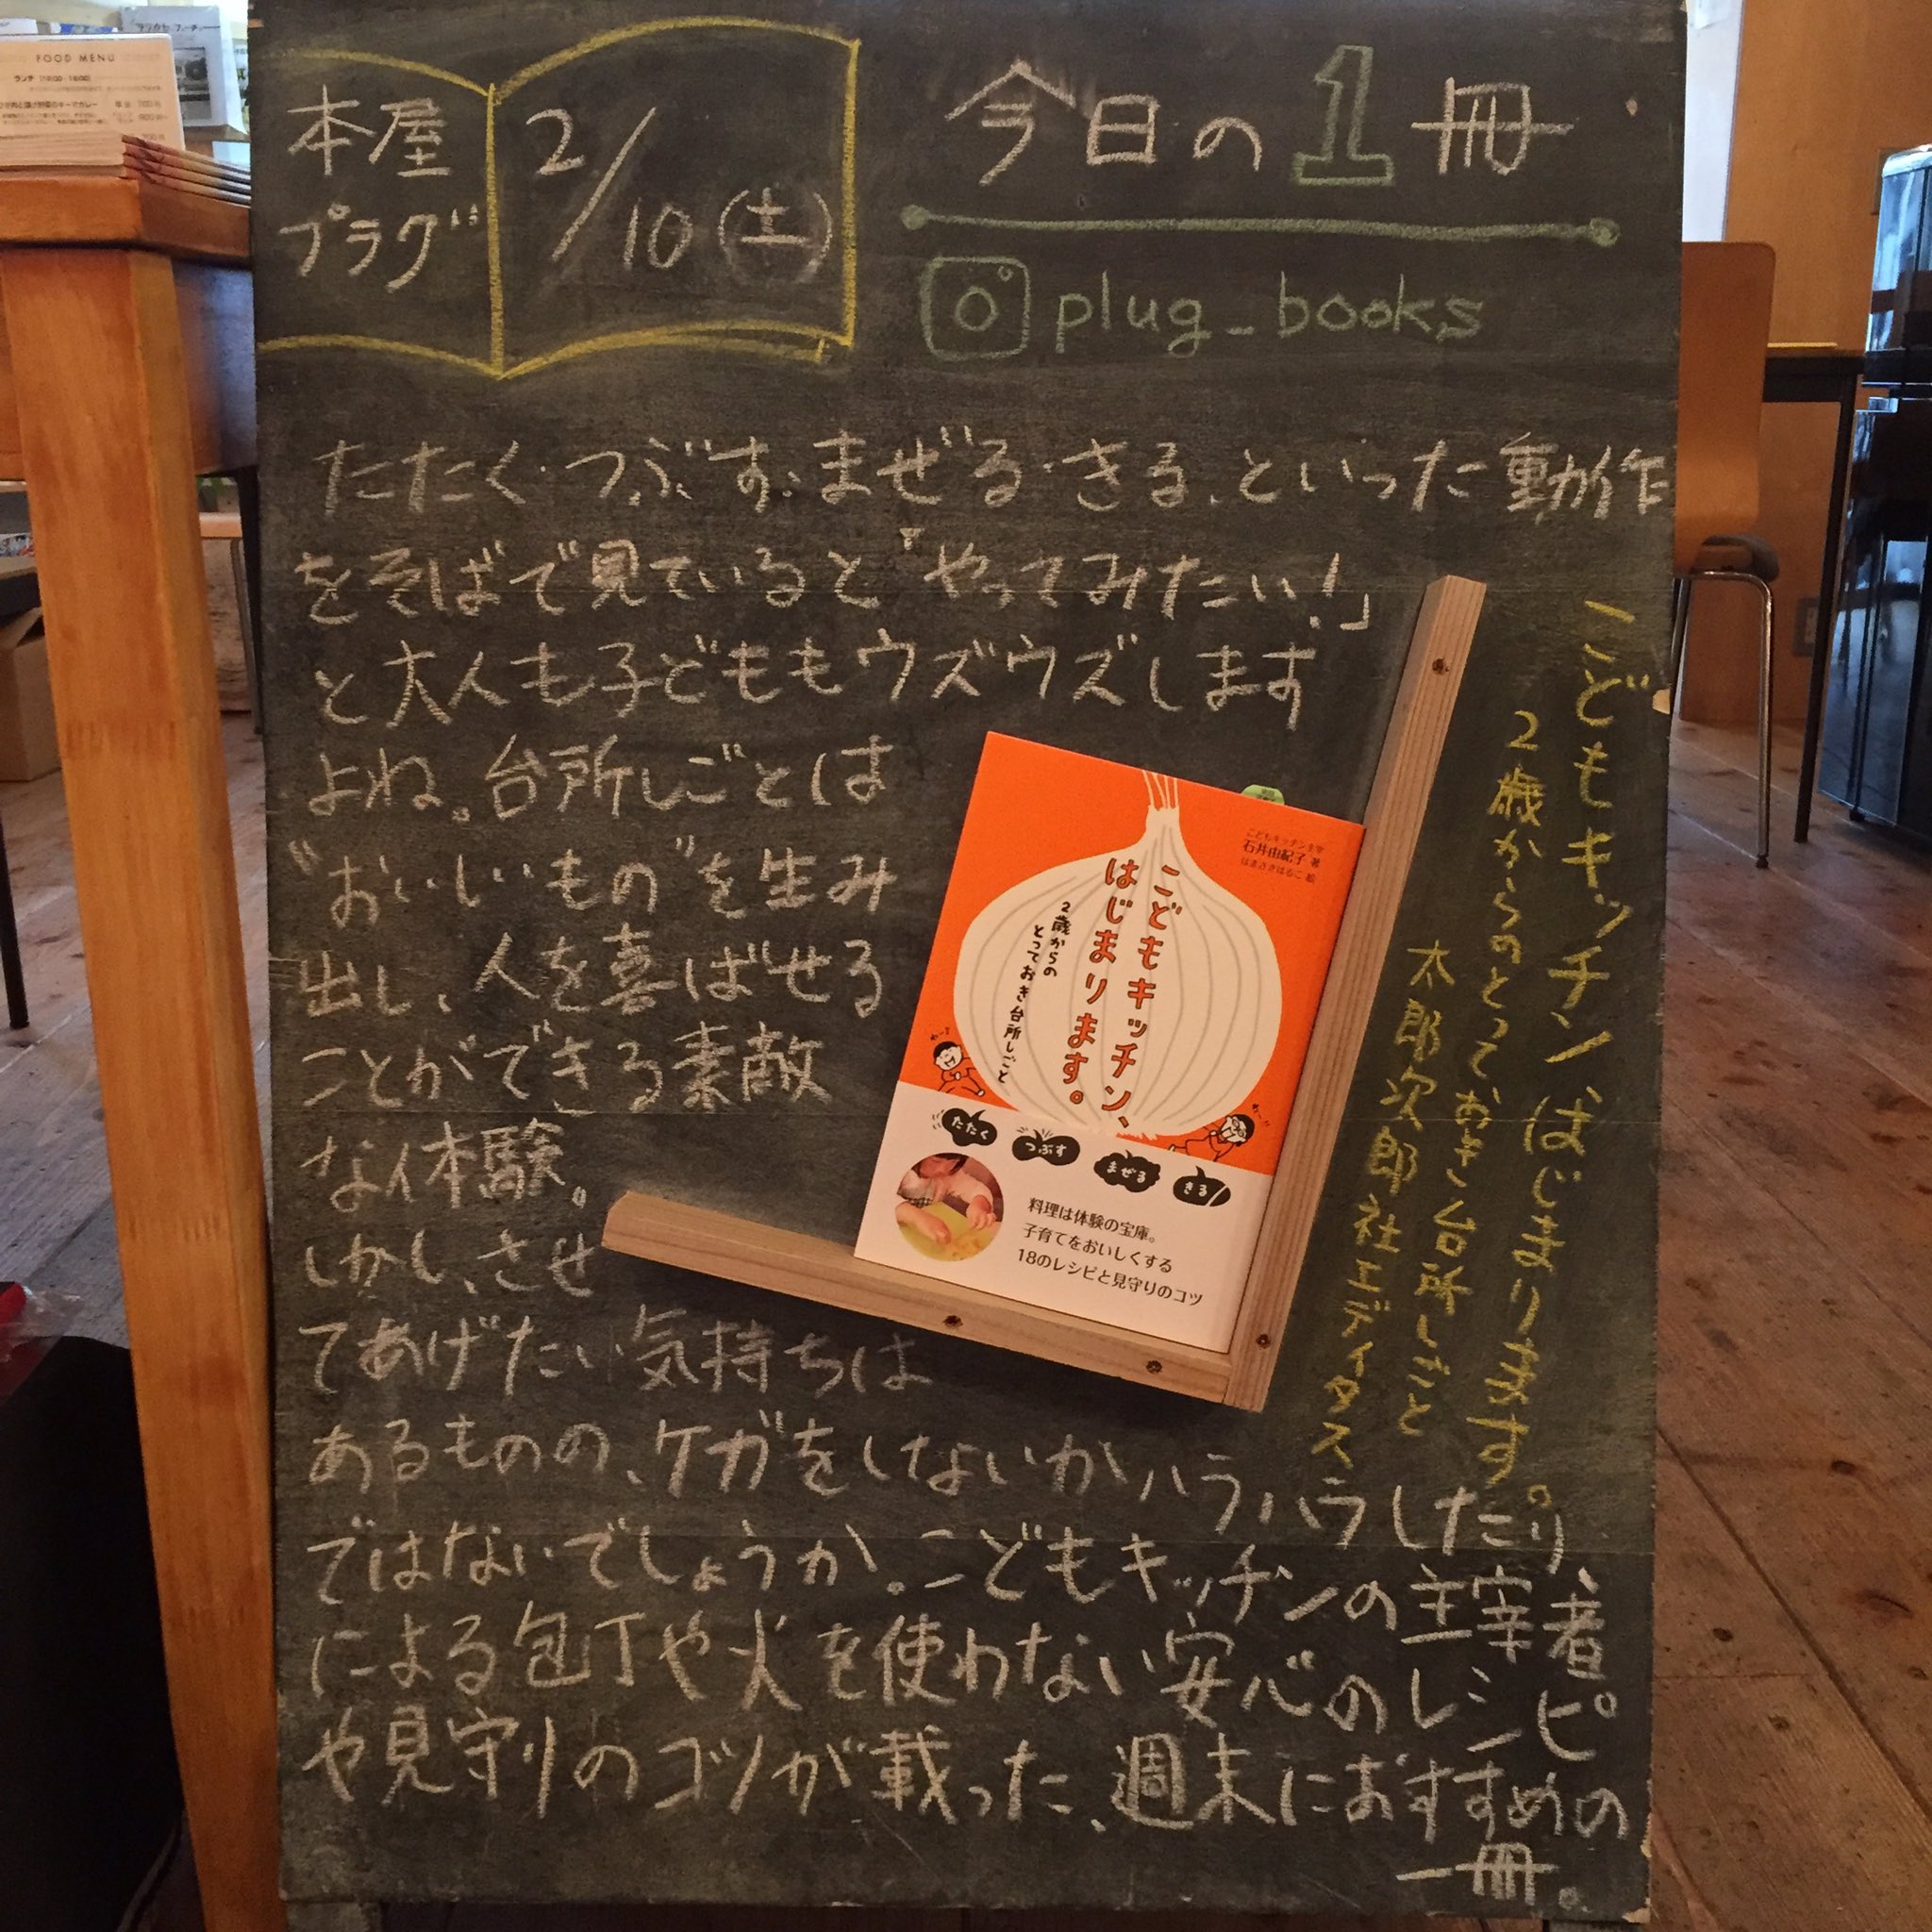 FOOD MENU
本屋
プラグ
2/10(土)
今日の1冊
plug_books
たたく・つぶす・まぜる・きる、といった動作
をそばで見ていると「やってみたい!」
と大人も子どももウズウズします
よね。台所しごとは
"おいしいもの"を生み
出し、人を喜ばせる
ことができる素敵
な体験。
しかし、させ
てあげたい気持ちは
あるものの、ケガをしないかハラハラしたり、
ではないでしょうか。こどもキッチンの主宰者
による包丁や火を使わない安心のレシピ
や見守りのコツが載った、週末におすすめの
一冊。
こどもキッチンはじまります。
2歳からのとっておき台所しごと
太郎次郎社エディタス
こどもキッチン主宰
石井由紀子 著
はまさきはるこ 絵
こどもキッチン、
はじまります。
2歳からの
とっておき台所しごと
たたく
つぶす
まぜる
きる
料理は体験の宝庫。
子育てをおいしくする
18のレシピと見守りのコツ